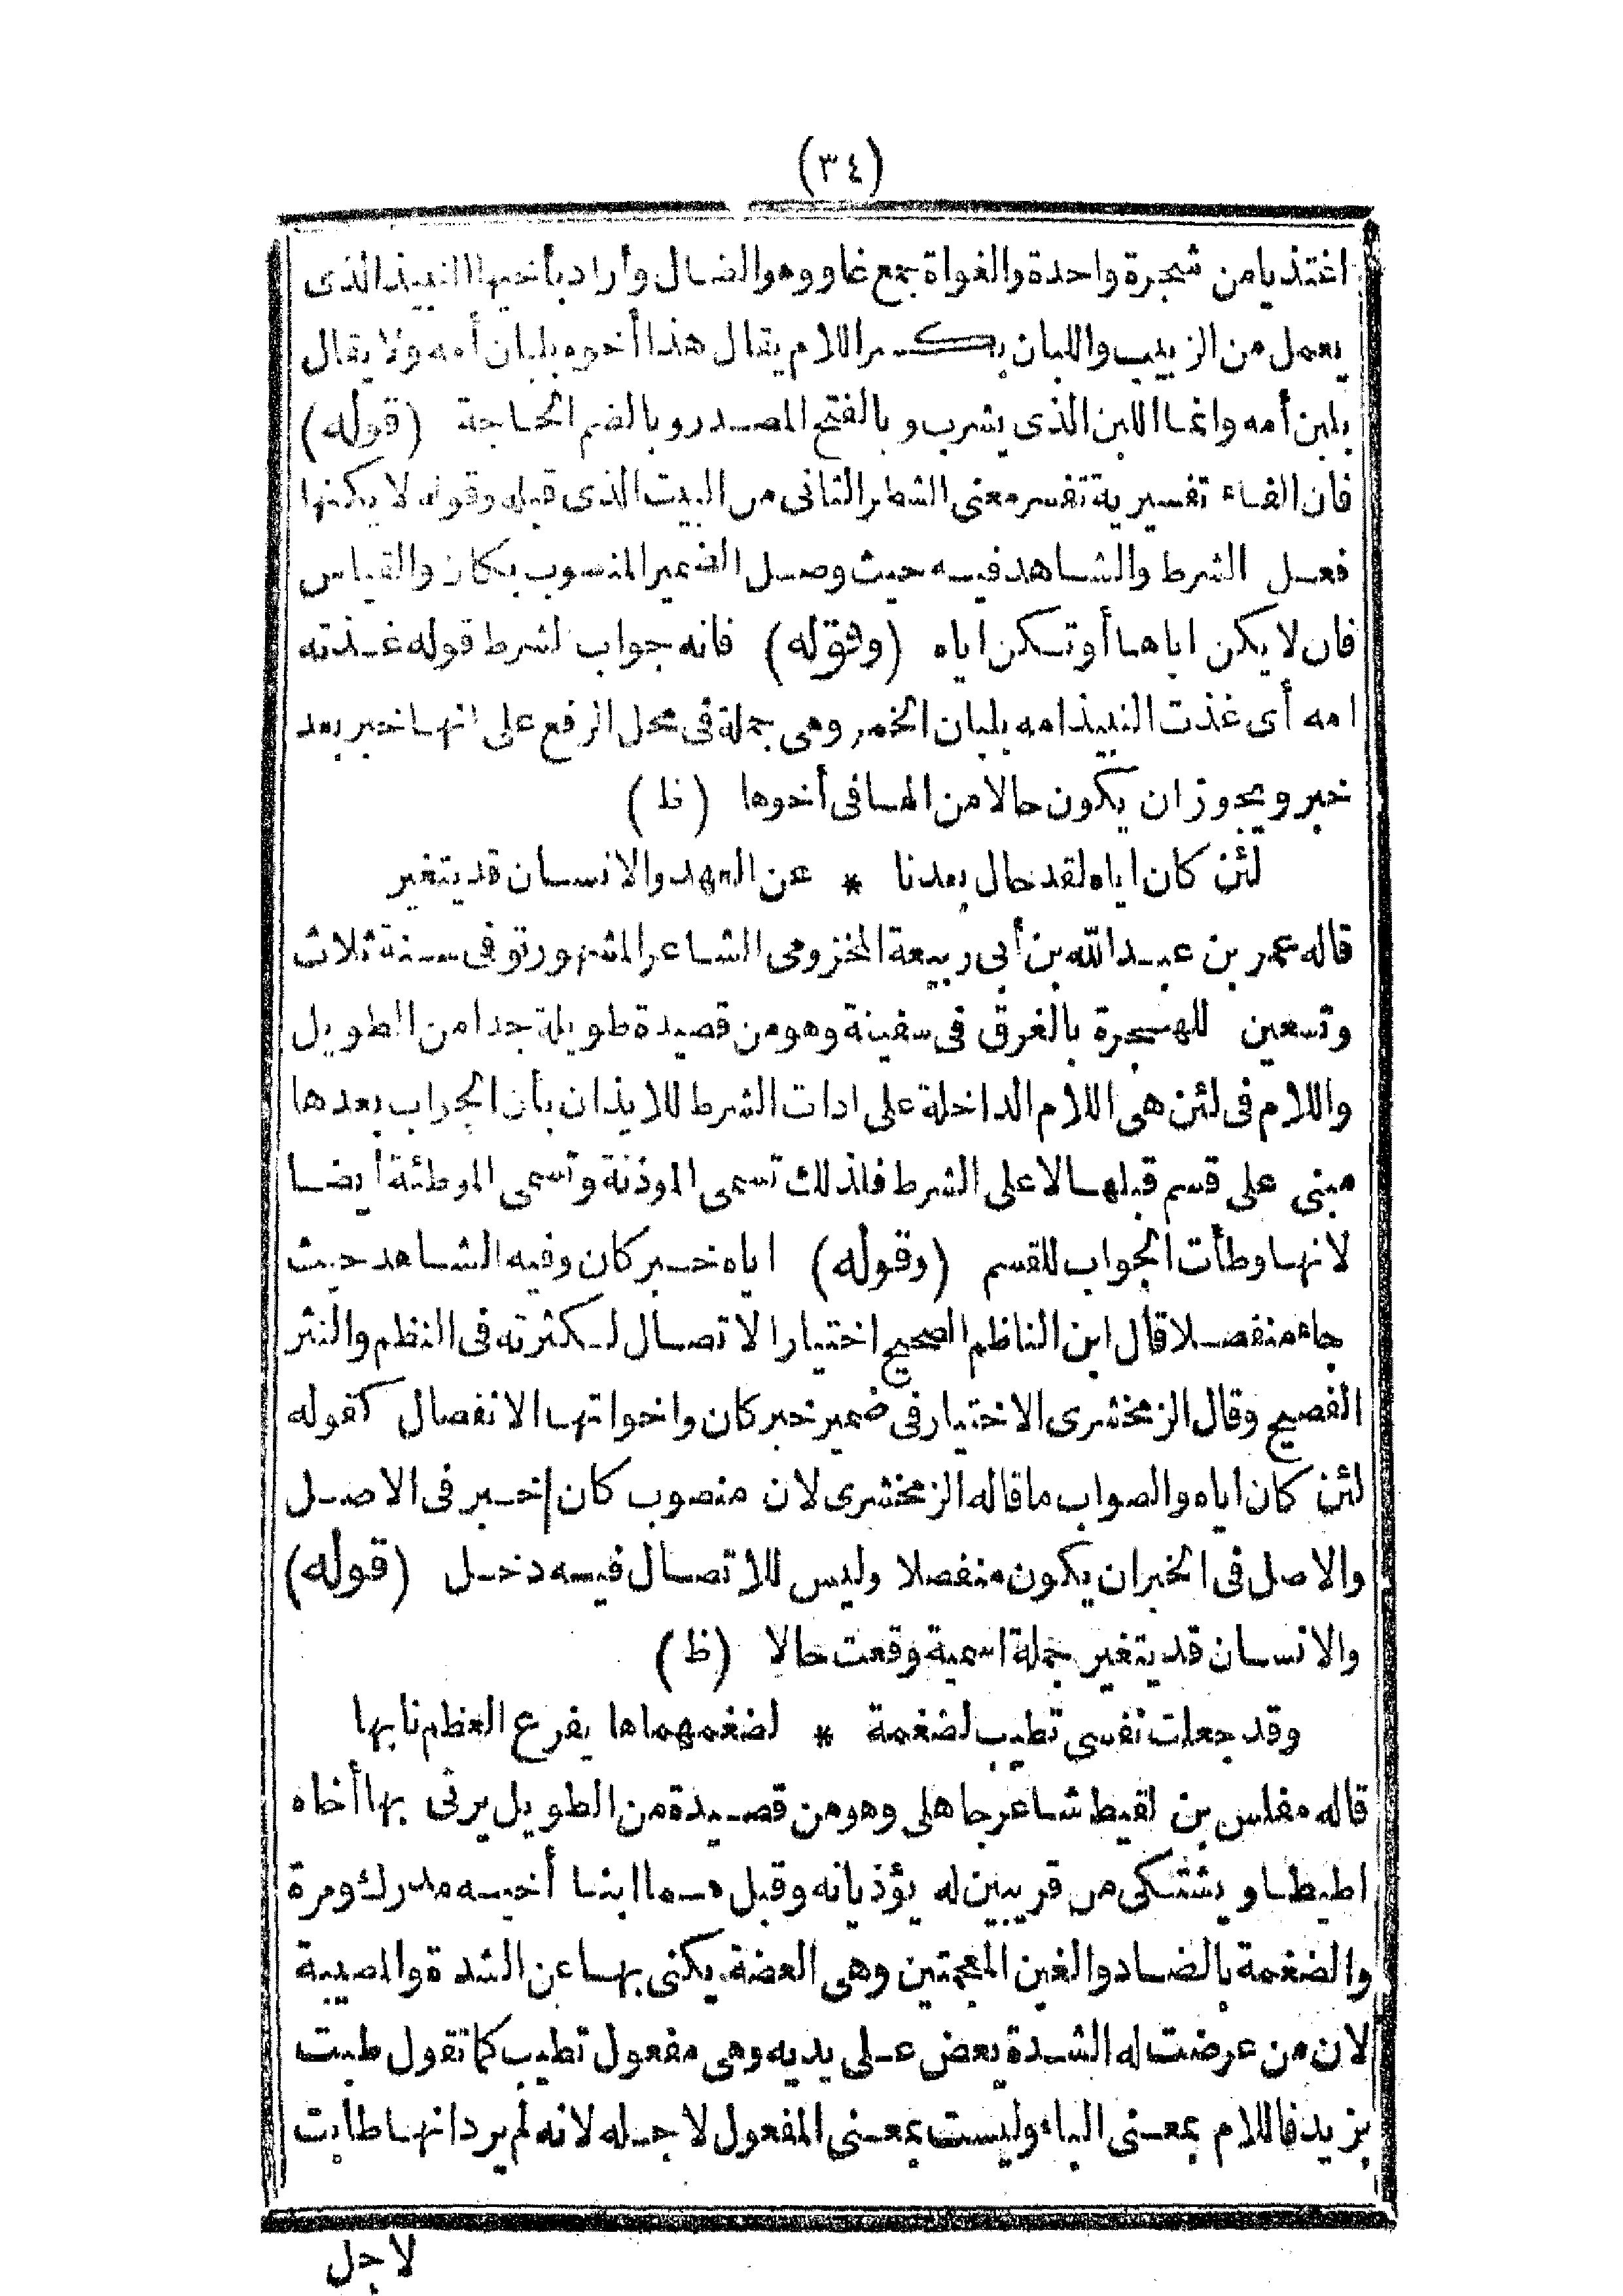 (٣٤)
اغتذيا من شجرة واحدة والغواة جمع غاو وهو الضال وأراد بأخيها النبيذ الذى
يعمل من الزبيب واللبان بكسر اللام يقال هذا أخوه بلبان أمه ولا يقال
بلبن أمه وانما اللبن الذى يشرب و بالفتح المصدر وبالضم الحاجة (قوله)
فان الفاء تفسيرية تفسر معنى الشطر الثانى من البيت الذى قبله وقوله لا يكنها
فعل الشرط والشاهد فيه حيث وصل الضمير المنصوب بكان والقياس
فان لا يكن اياها أو تكن اياه (وقوله) فانه جواب لشرط قوله غذته
امه أى غذت النبيذ امه بلبان الخمر وهى جملة فى محل الرفع على انها خبر بعد
خبر ويجوز ان يكون حالا من الهاء فى أخوها (ظ)
لئن كان اياه لقد حال بعدنا * عن العهد والانسان قد يتغير
قاله عمر بن عبد الله بن أبى ربيعة المخزومى الشاعر المشهور توفى سنة ثلاث
وتسعين للهجرة بالغرق فى سفينة وهو من قصيدة طويلة جدا من الطويل
واللام فى لئن هى اللام الداخلة على ادات الشرط للايذان بأن الجواب بعدها
مبنى على قسم قبلها لا على الشرط فلذلك تسمى الموذنة وتسمى الموطئة أيضا
لانها وطأت الجواب للقسم (وقوله) اياه خبر كان وفيه الشاهد حيث
جاء منفصلا قال ابن الناظم الصحيح اختيارا لاتصال لكثرته فى النظم والنثر
الفصيح وقال الزمخشرى الاختيار فى ضمير خبر كان واخواتها الانفصال كقوله
لئن كان اياه والصواب ما قاله الزمخشرى لان منصوب كان خبر فى الاصل
والاصل فى الخبر ان يكون منفصلا وليس للاتصال فيه دخل (قوله)
والانسان قد يتغير جملة اسمية وقعت حالا (ظ)
وقد جعلت نفسى تطيب لضغمة * لضغمهماها يقرع العظم نابها
قاله مغلس بن لقيط شاعر جاهلى وهو من قصيدة من الطويل يرثى بها أخاه
اطيطا ويشتكى من قريبين له يؤذيانه وقبل هما ابنا أخيه مدرك ومرة
والضغمة بالضاد والغين المعجمتين وهى العضة يكنى بها عن الشدة والمصيبة
لان من عرضت له الشدة يعض على يديه وهى مفعول تطيب كما تقول طبت
بزيد فاللام بمعنى الباء وليست بمعنى المفعول لاجله لانه لم يرد انها طابت
لاجل